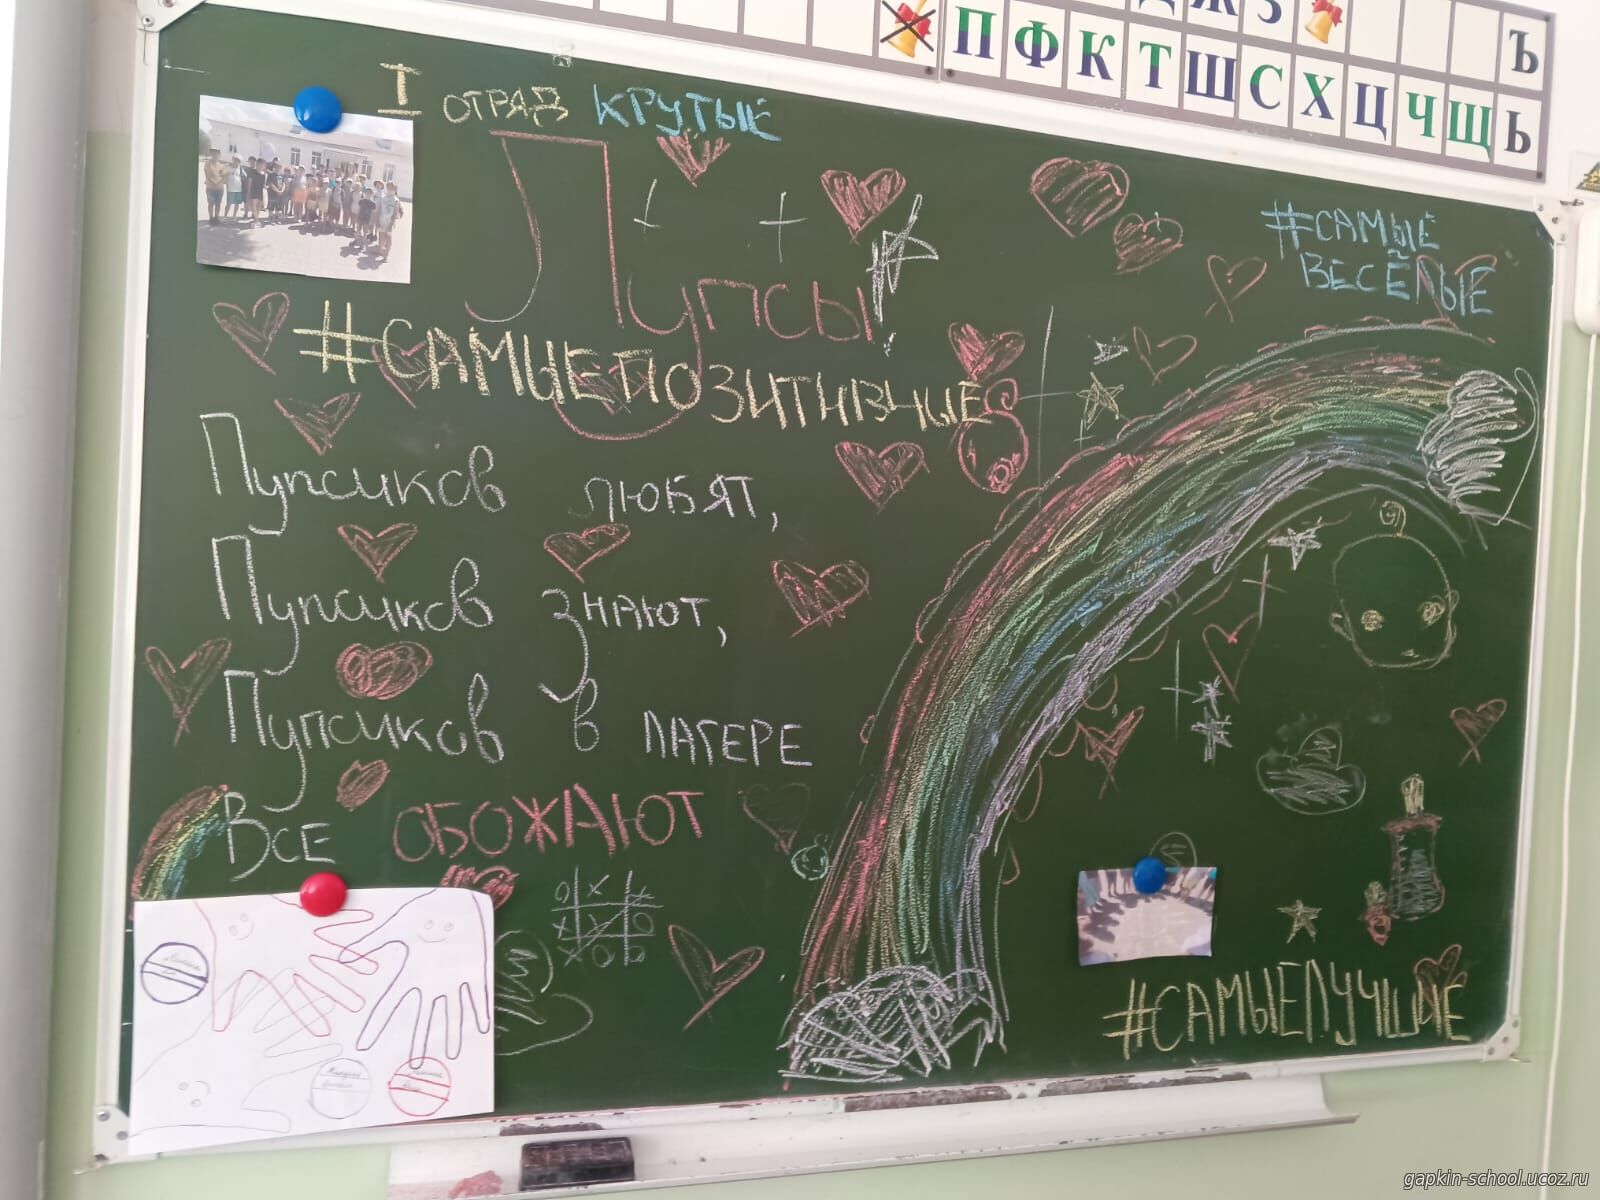 Ж З
Ъ
П Ф К Т Ш С Х Ц Ч Щ Ь
I ОТРЯД КРУТЫЕ
Пупсы
#САМЫЕ
ВЕСЁЛЫЕ
#САМЫЕПОЗИТИВНЫЕ
Пупсиков ЛЮБЯТ,
Пупсиков ЗНАЮТ,
Пупсиков В ЛАГЕРЕ
ВСЕ ОБОЖАЮТ
#САМЫЕЛУЧШИЕ
gapkin-school.ucoz.ru